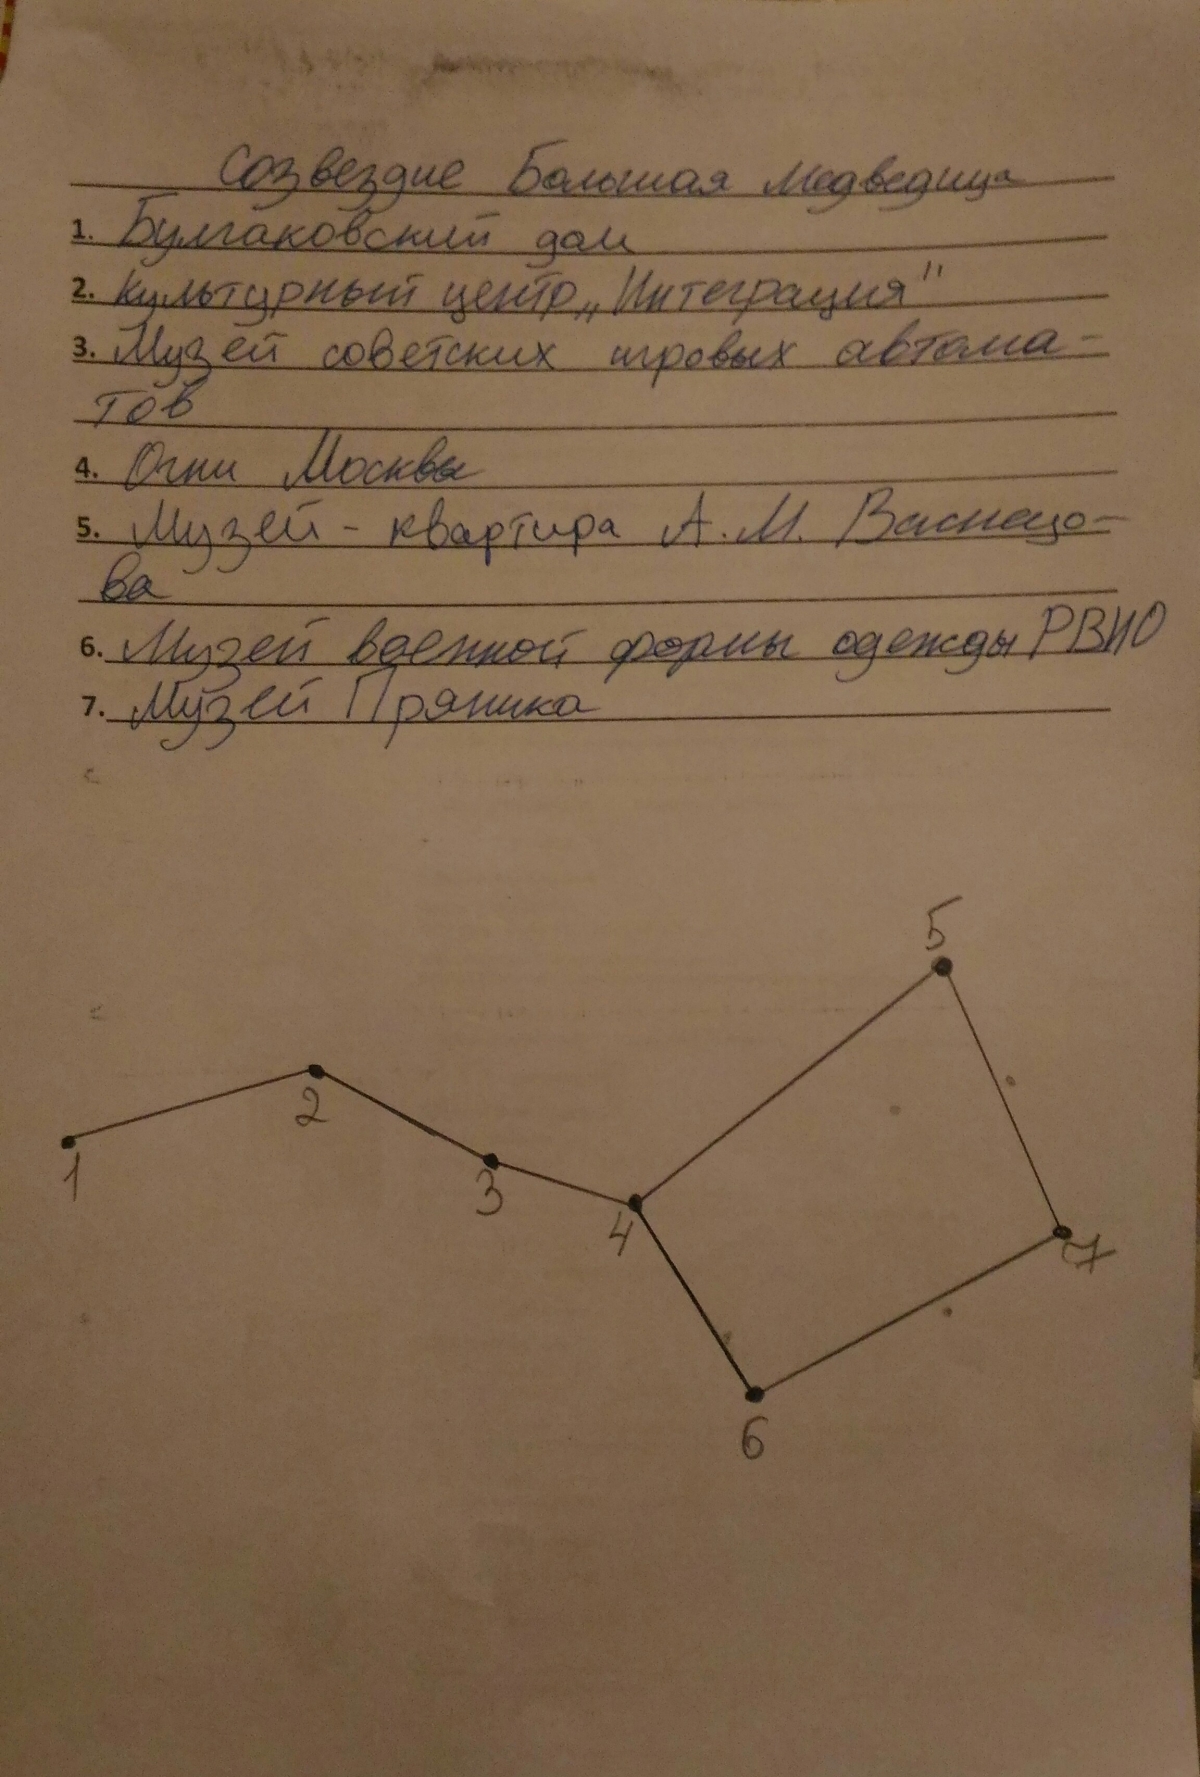 Созвездие Большая Медведица
1. Булгаковский дом
2. Культурный центр „Интеграция"
3. Музей советских игровых автома-
тов
4. Огни Москвы
5. Музей - квартира А.М. Васнецо-
ва
6. Музей военной формы одежды РВИО
7. Музей Пряника
5
2
1
3
4
7
6